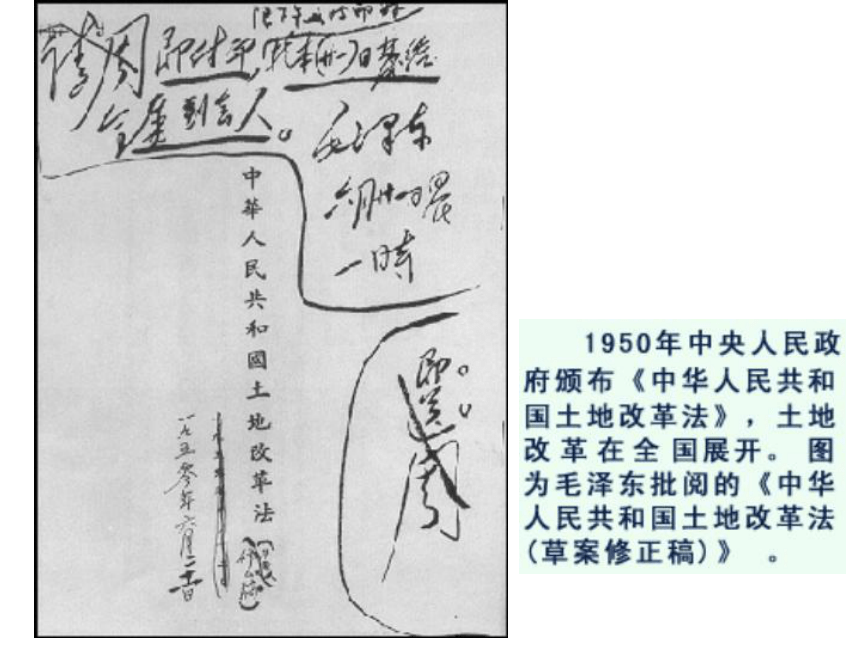 请周即付印，
全廌到会人。
毛泽东
六月廿一日晨
一时
即送
周
中華人民共和國土地改革法
一九五零年六月二十一日
1950年中央人民政
府颁布《中华人民共和
国土地改革法》，土地
改革在全国展开。图
为毛泽东批阅的《中华
人民共和国土地改革法
(草案修正稿)》 。